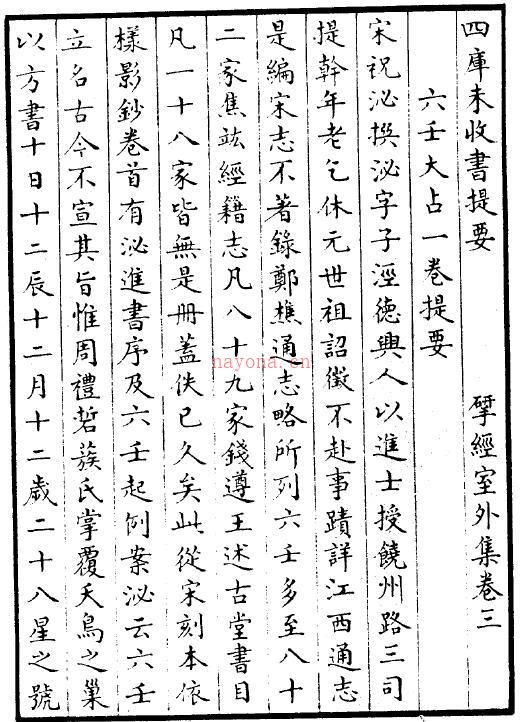 四庫未收書提要　　　揅經室外集卷三
六壬大占一卷提要
宋祝泌撰泌字子涇德興人以進士授饒州路三司
提幹年老乞休元世祖詔徵不赴事蹟詳江西通志
是編宋志不著錄鄭樵通志略所列六壬多至八十
二家焦竑經籍志凡八十九家錢遵王述古堂書目
凡一十八家皆無是册蓋佚已久矣此從宋刻本依
樣影鈔卷首有泌進書序及六壬起例案泌云六壬
立名古今不宣其旨惟周禮硩蔟氏掌覆夭鳥之巢
以方書十日十二辰十二月十二歲二十八星之號
nayona.cn